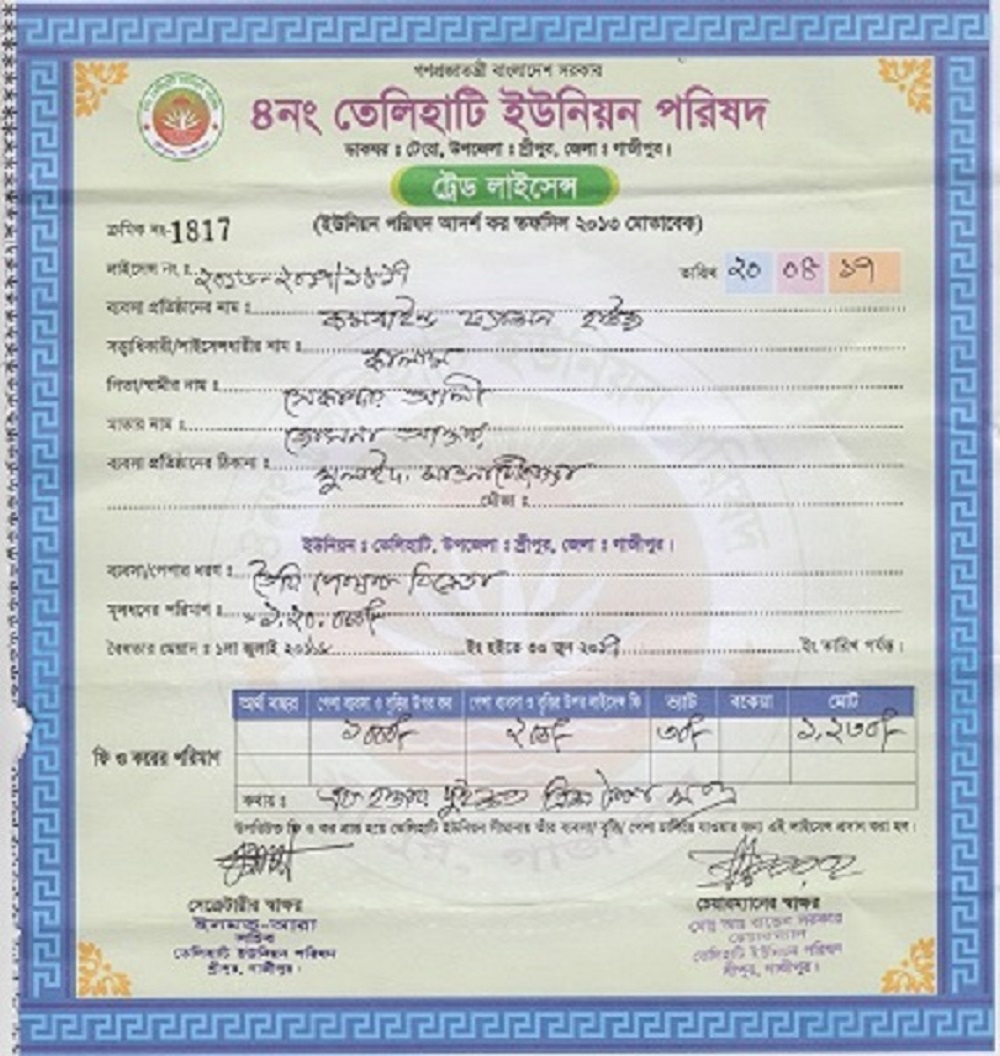 গণপ্রজাতন্ত্রী বাংলাদেশ সরকার
৪নং তেলিহাটি ইউনিয়ন পরিষদ
ডাকঘর ঃ টেংরা, উপজেলা ঃ শ্রীপুর, জেলা ঃ গাজীপুর।
ট্রেড লাইসেন্স
ক্রমিক নং-1817
(ইউনিয়ন পরিষদ আদর্শ কর তফসিল ২০১৩ মোতাবেক)
লাইসেন্স নং ঃ ২০১৬-২০১৭/১৪১৭
তারিখ ২০ ০৪ ১৭
ব্যবসা প্রতিষ্ঠানের নাম ঃ কমবাইন্ড ফ্যাশন হাউজ
সত্ত্বাধিকারী/লাইসেন্সধারীর নাম ঃ কালাম
পিতা/স্বামীর নাম ঃ সেকান্দার আলী
মাতার নাম ঃ
ব্যবসা প্রতিষ্ঠানের ঠিকানা ঃ মুলাইদ, মাওনা চৌরাস্তা
মৌজা ঃ
ইউনিয়ন ঃ তেলিহাটি, উপজেলা ঃ শ্রীপুর, জেলা ঃ গাজীপুর।
ব্যবসা/পেশার ধরণ ঃ তৈরি পোশাক বিক্রেতা
মূলধনের পরিমাণ ঃ ১,২০,০০০/-
বৈধতার মেয়াদ ঃ ১লা জুলাই ২০১৬ ইং হইতে ৩০ জুন ২০১৭ ইং তারিখ পর্যন্ত।
অর্থ বছর পেশা ব্যবসা ও বৃত্তির উপর কর পেশা ব্যবসা ও বৃত্তির উপর লাইসেন্স ফি ভ্যাট বকেয়া মোট
১০০০/- ২০০/- ৩০/- ১,২৩০/-
ফি ও করের পরিমাণ
কথায় ঃ এক হাজার দুইশত ত্রিশ টাকা মাত্র
উপরিউক্ত ফি ও কর প্রাপ্ত হয়ে তেলিহাটি ইউনিয়ন সীমানায় তাঁর ব্যবসা/ বৃত্তি/ পেশা চালিয়ে যাওয়ার জন্য এই লাইসেন্স প্রদান করা হল।
সেক্রেটারীর স্বাক্ষর
চেয়ারম্যানের স্বাক্ষর
সচিব
তেলিহাটি ইউনিয়ন পরিষদ
শ্রীপুর, গাজীপুর।
চেয়ারম্যান
তেলিহাটি ইউনিয়ন পরিষদ
শ্রীপুর, গাজীপুর।